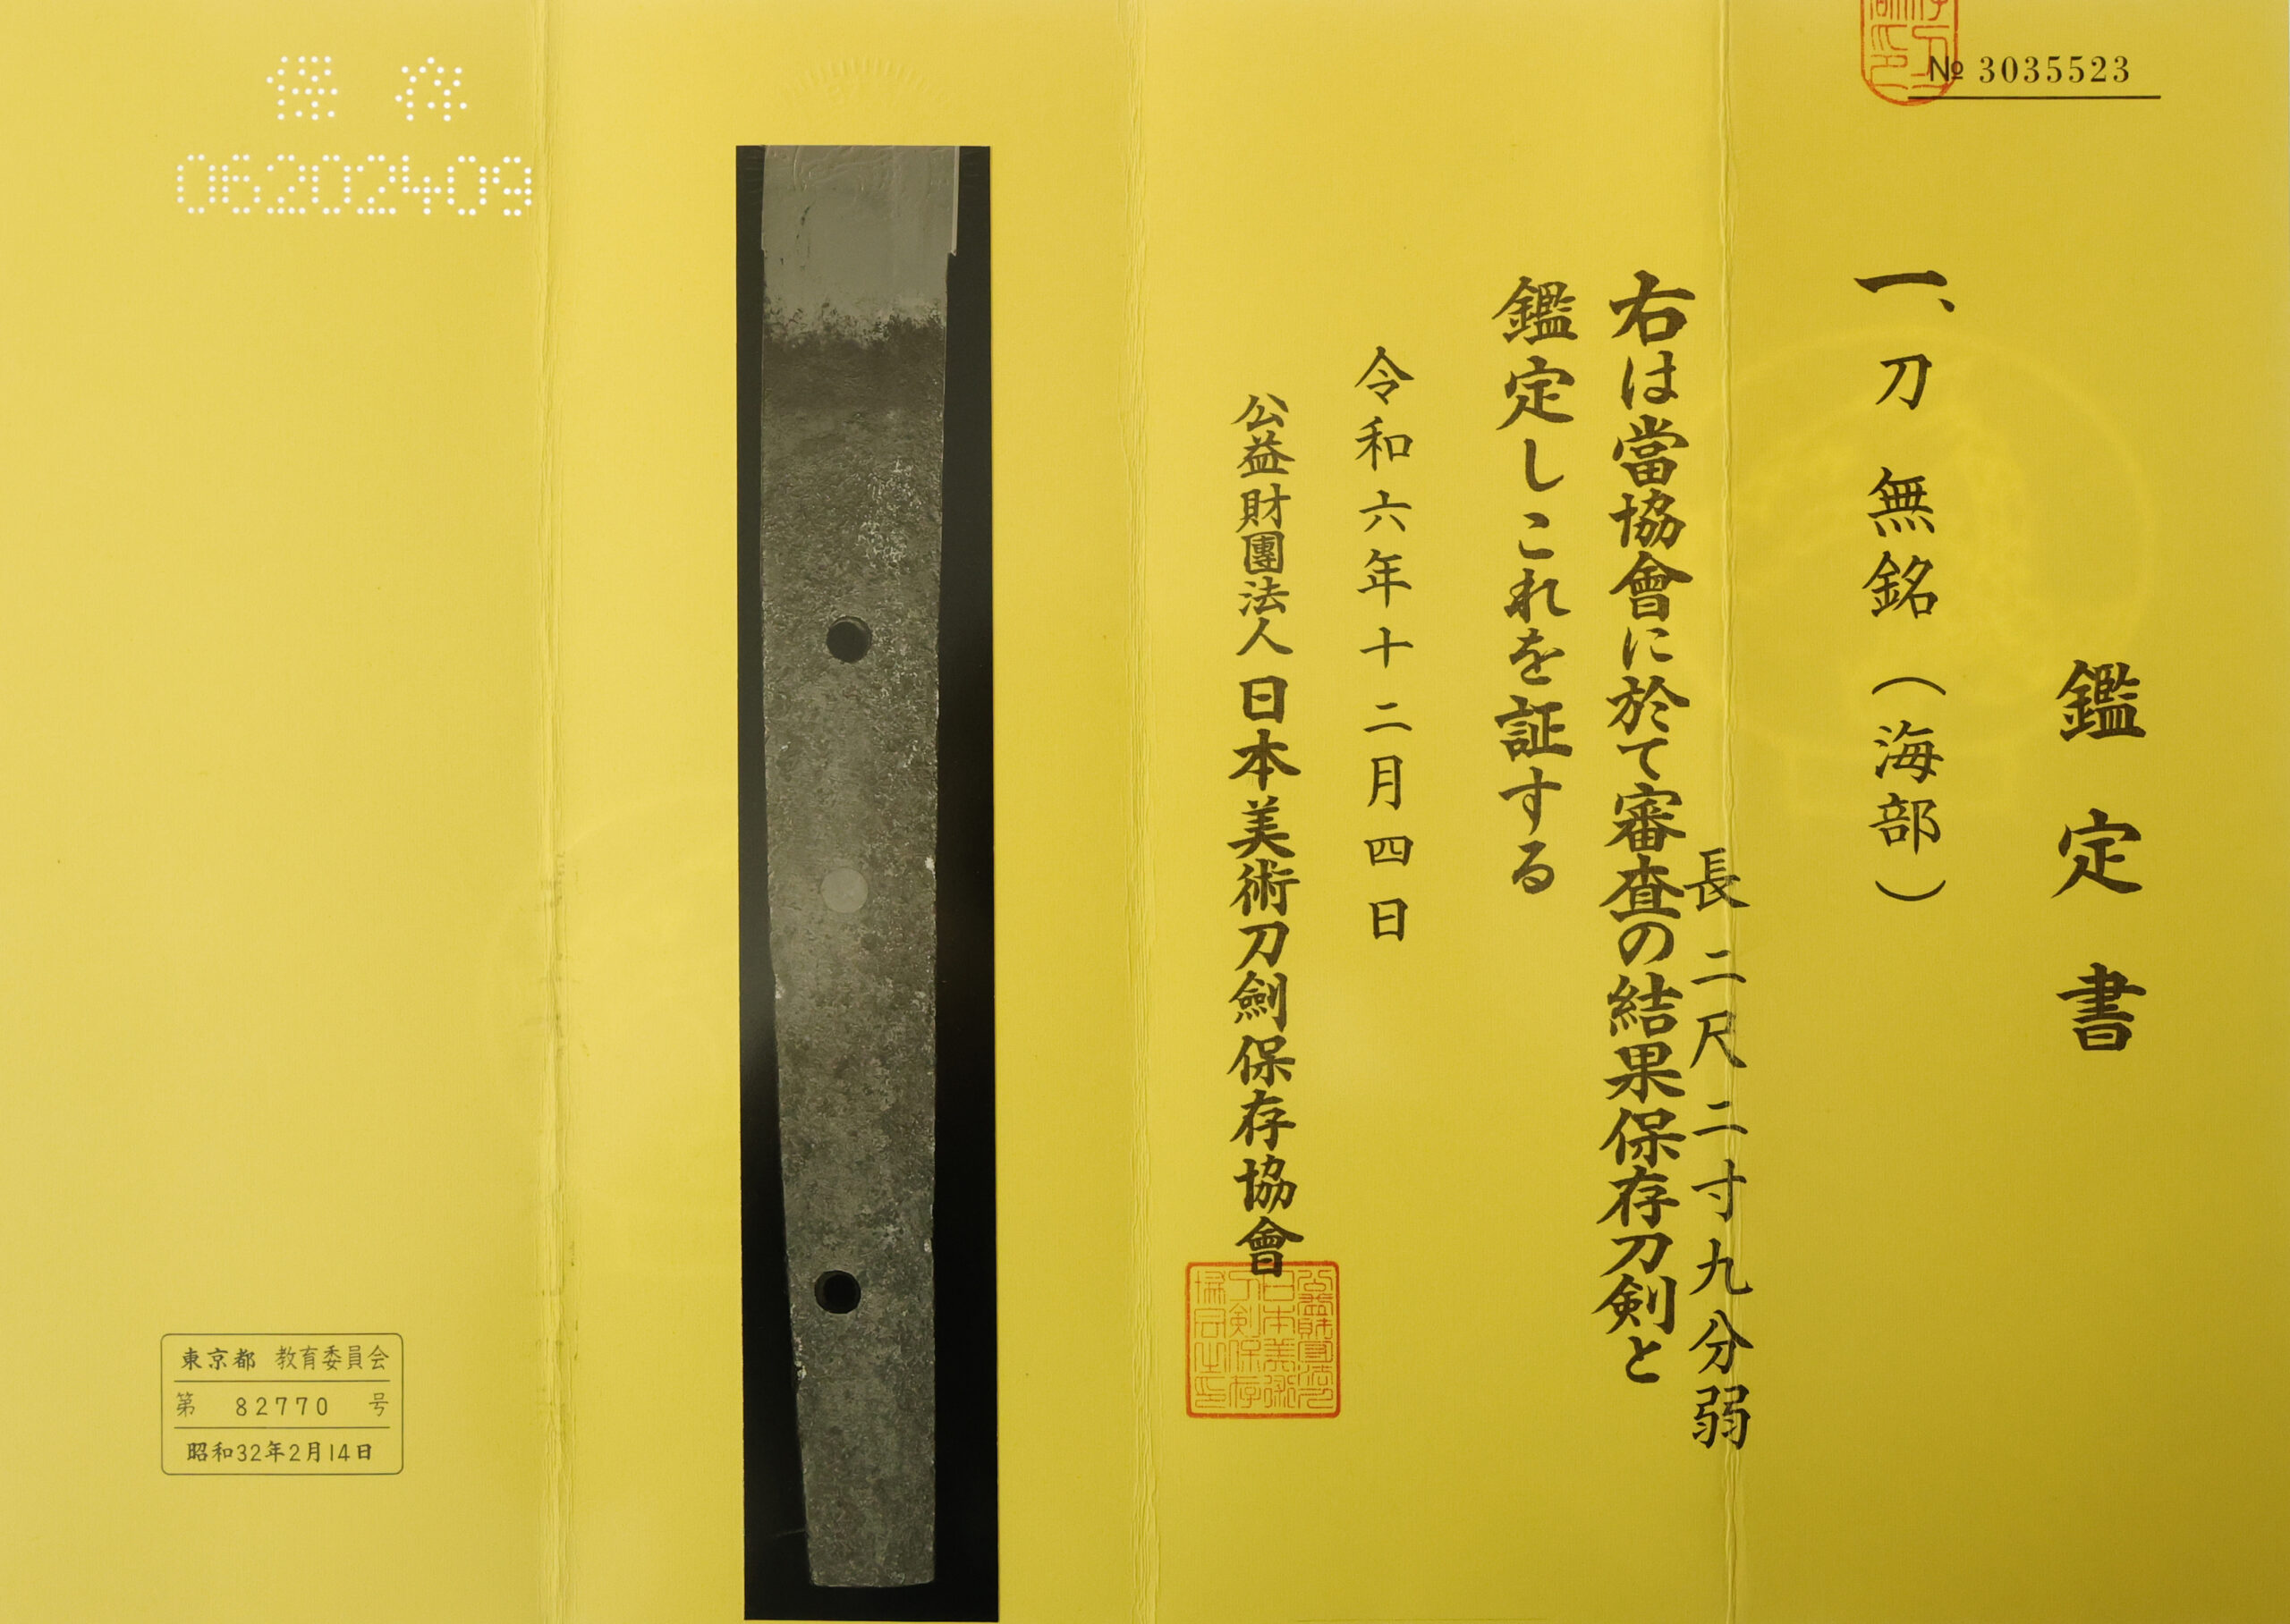 № 3035523
鑑定書
一、刀 無銘（海部）
長 二尺二寸九分弱
右は當協會に於て審査の結果保存刀剣と
鑑定しこれを証する
令和六年十二月四日
公益財團法人日本美術刀劍保存協會
保存
06202409
東京都 教育委員会
第 82770 号
昭和32年2月14日